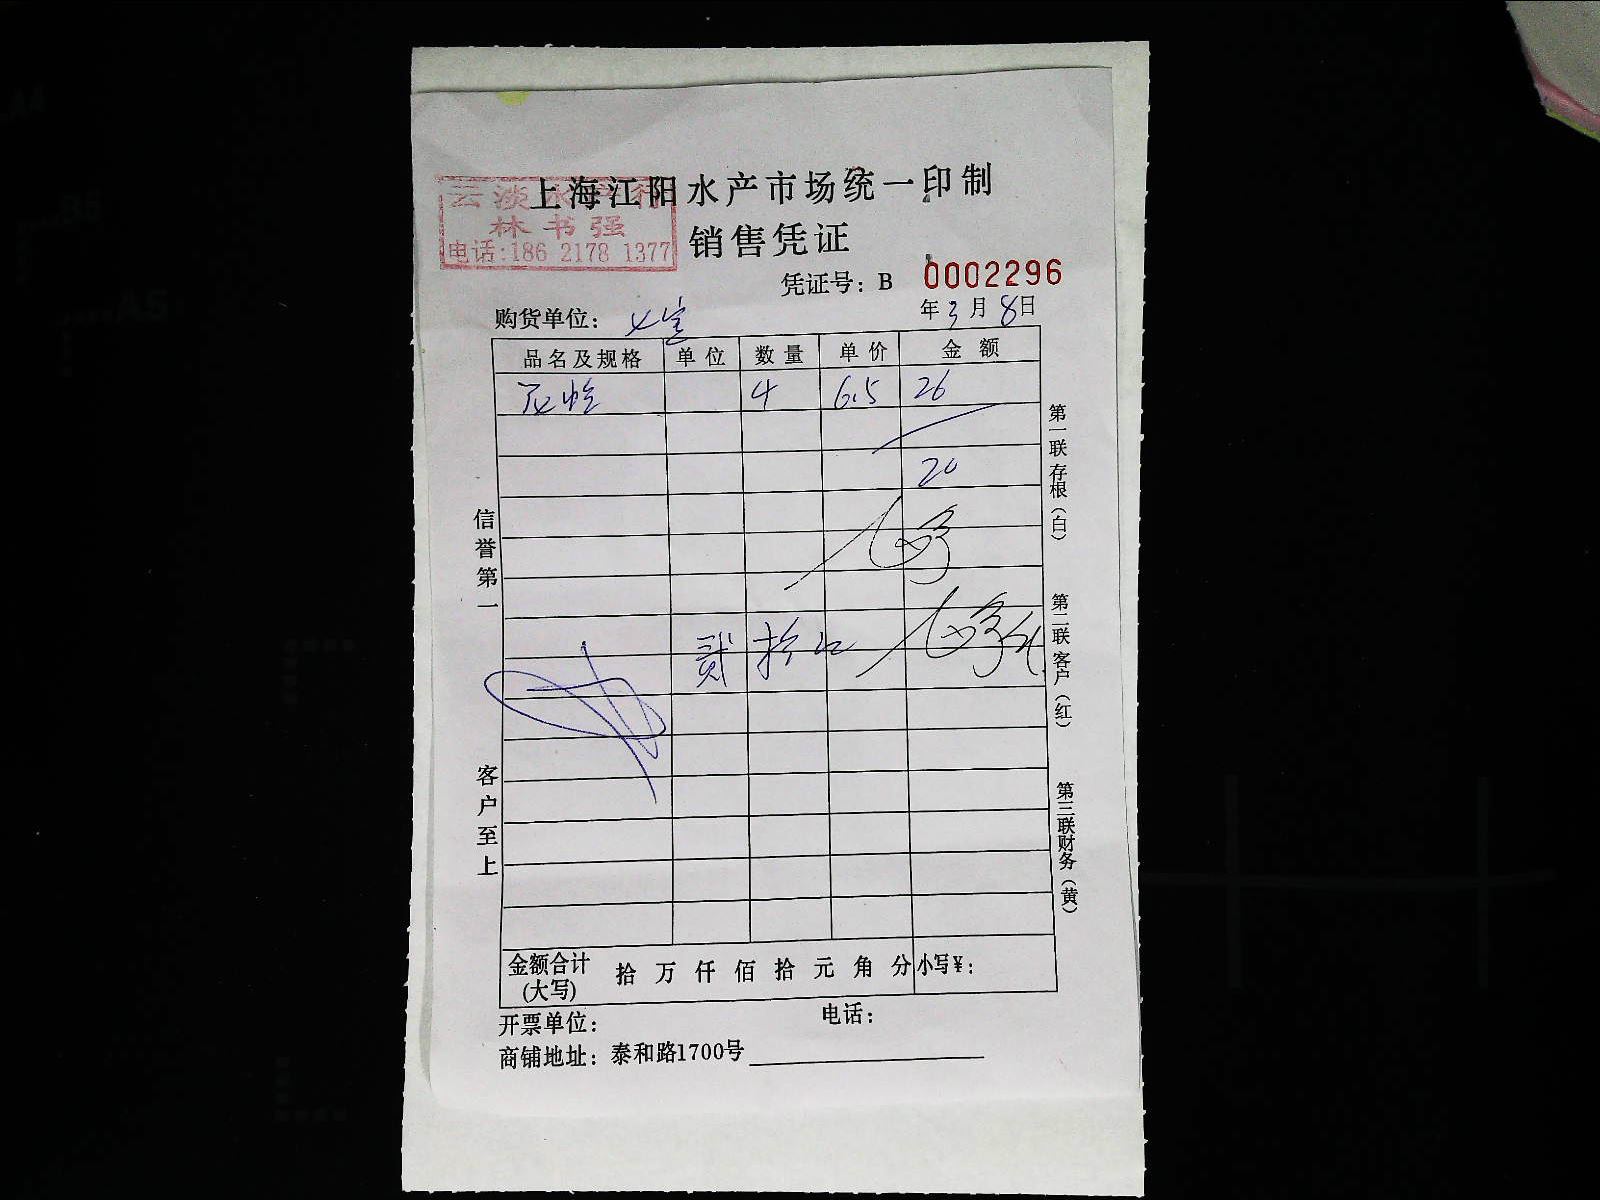 上海江阳水产市场统一印制
云淡水产行
林书强
电话:186 2178 1377
销售凭证
凭证号：B 0002296
购货单位：
年3月8日
品名及规格 单位 数量 单价 金额
4 6.5 26
20
贰拾
信誉第一
客户至上
第一联存根（白）
第二联客户（红）
第三联财务（黄）
金额合计(大写) 拾 万 仟 佰 拾 元 角 分 小写¥：
开票单位： 电话：
商铺地址：泰和路1700号